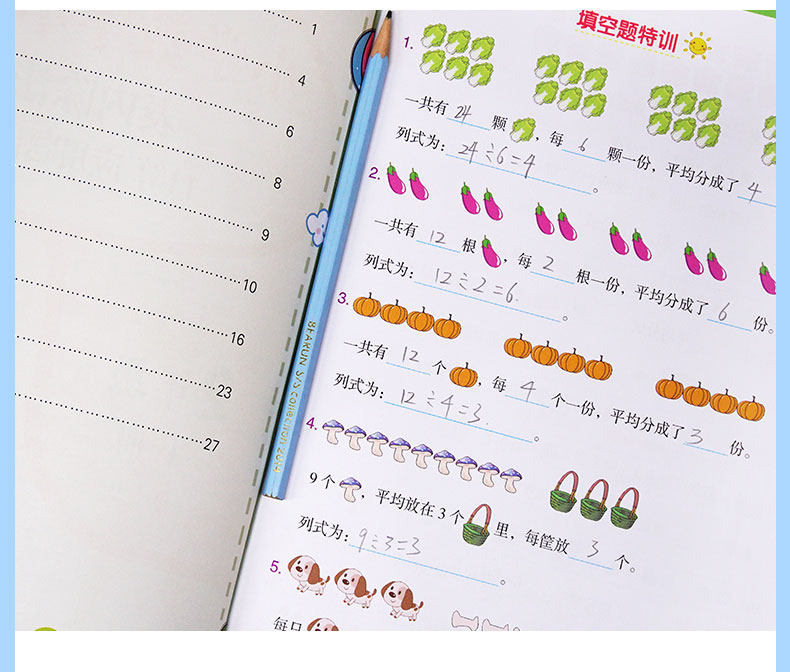 1
4
6
8
9
10
16
23
27
BEAKUN S/S Collection
填空题特训
1.
一共有 24 颗 ，每 6 颗一份，平均分成了 4
列式为： 24÷6=4 。
2.
一共有 12 根 ，每 2 根一份，平均分成了 6 份。
列式为： 12÷2=6 。
3.
一共有 12 个 ，每 4 个一份，平均分成了 3 份。
列式为： 12÷4=3 。
4.
9个 ，平均放在3个 里，每筐放 3 个。
列式为： 9÷3=3 。
5.
每只